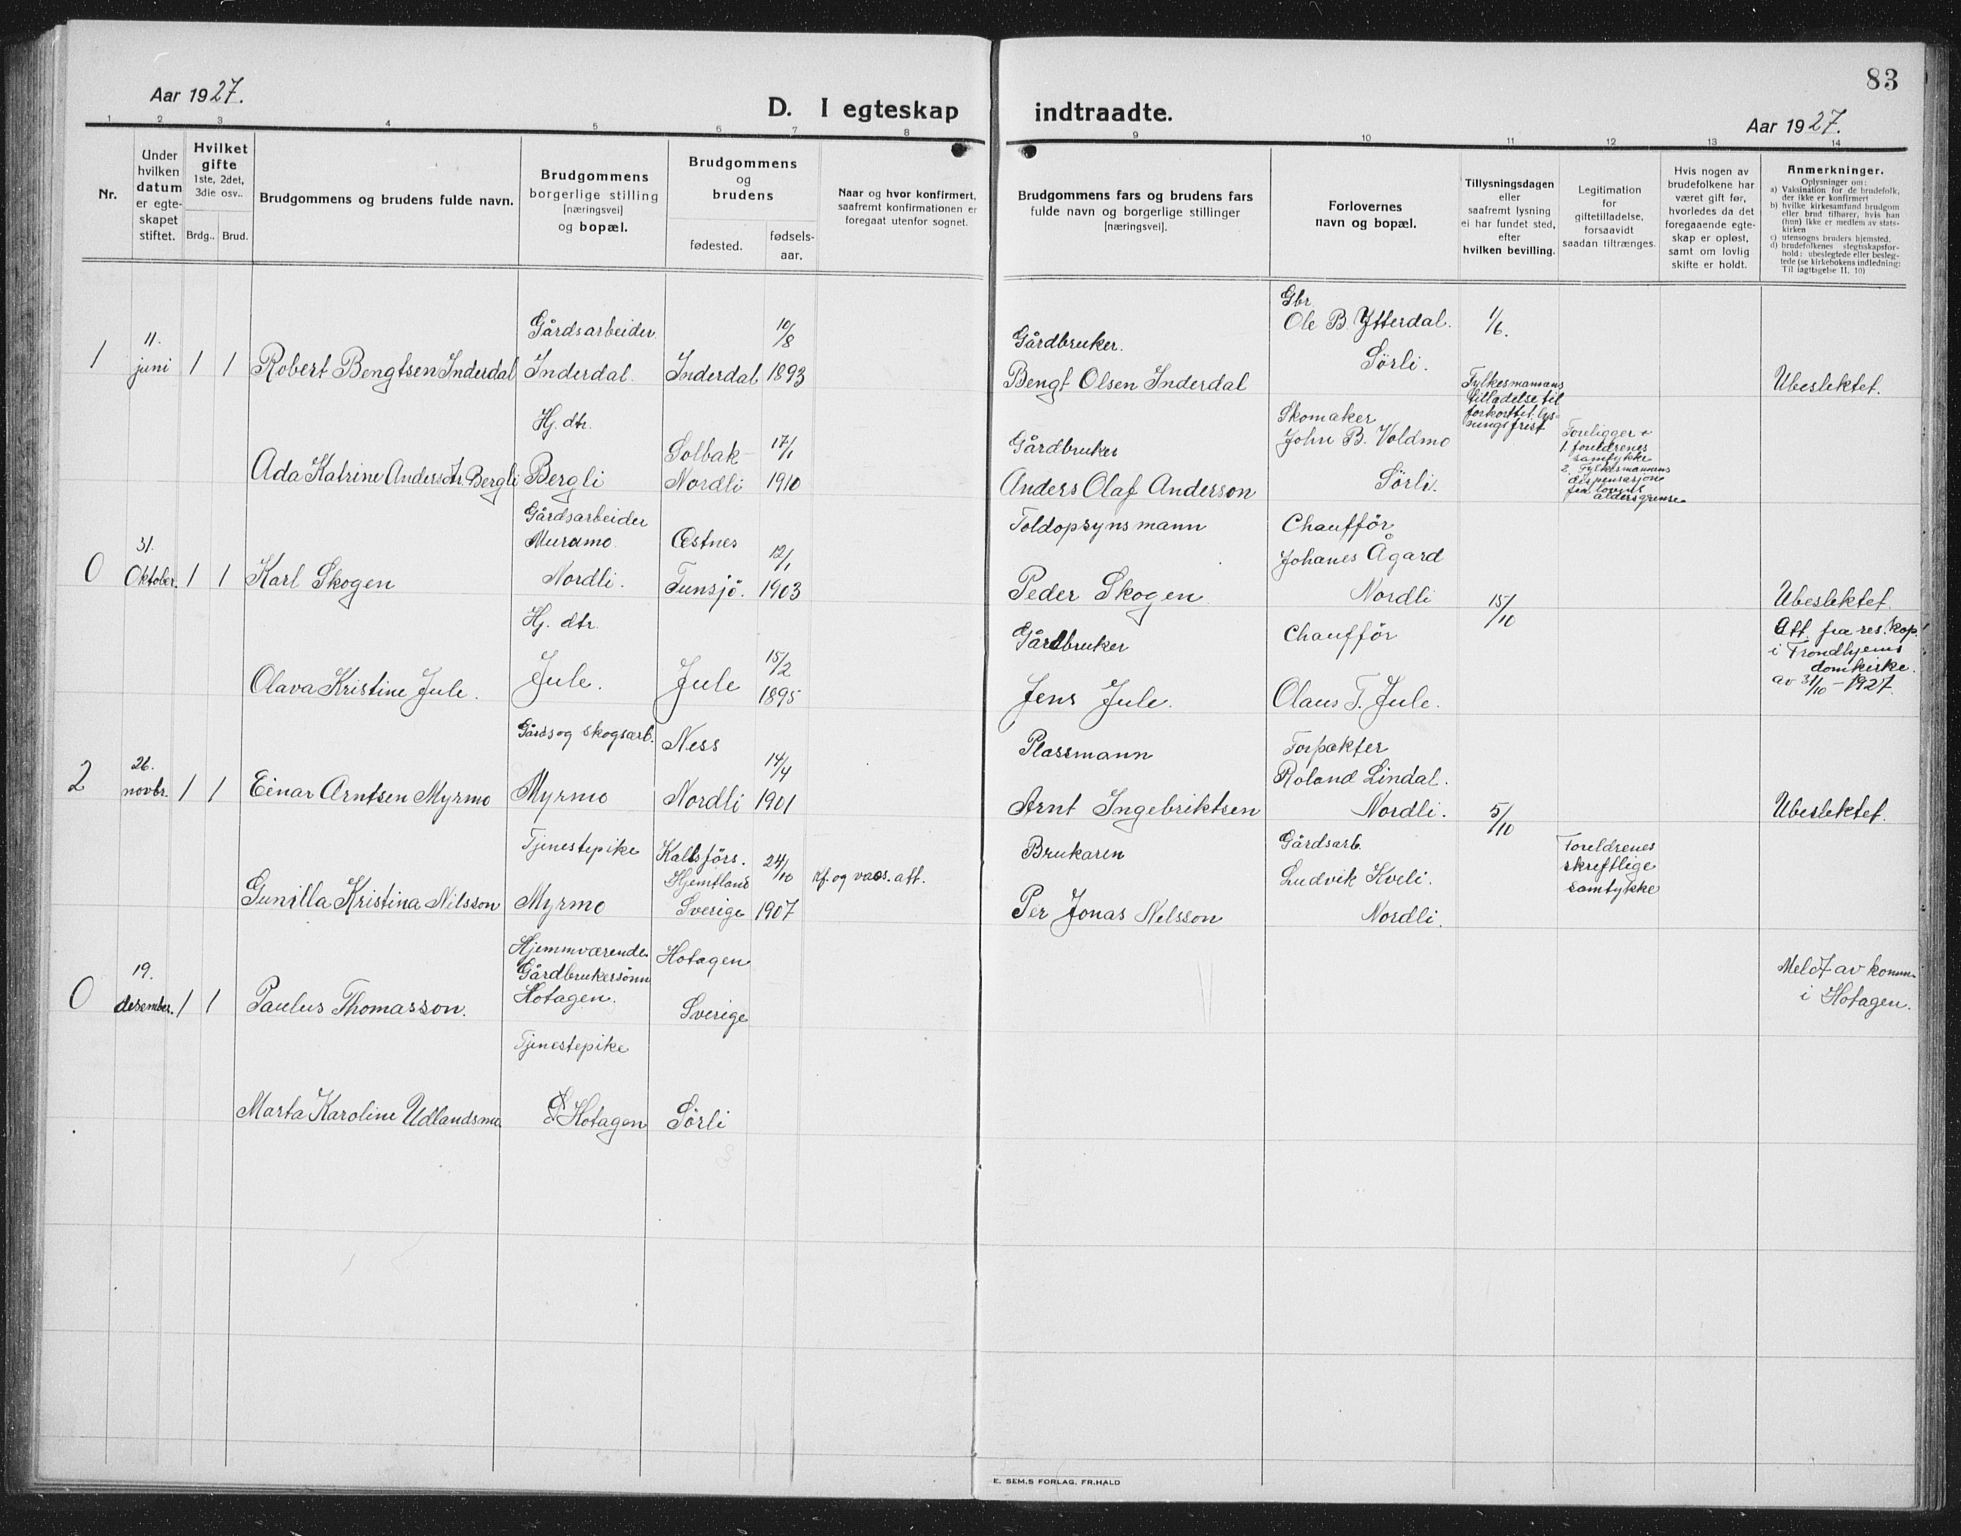 83
Aar 1927.
D. I egteskap indtraadte.
Aar 1927.
1 2 3 4 5 6 7 8 9 10 11 12 13 14
Nr.
Under
hvilken
datum
er egte-
skapet
stiftet.
Hvilket
gifte
1ste, 2det,
3die osv..
Brdg.. Brud.
Brudgommens og brudens fulde navn.
Brudgommens
borgerlige stilling
[næringsvei]
og bopæl.
Brudgommens
og
brudens
fødested.
fødsels-
aar.
Naar og hvor konfirmert,
saafremt konfirmationen er
foregaat utenfor sognet.
Brudgommens fars og brudens fars
fulde navn og borgerlige stillinger
[næringsvei].
Forlovernes
navn og bopæl.
Tillysningsdagen
eller
saafremt lysning
ei har fundet sted,
efter
hvilken bevilling.
Legitimation
for
giftetilladelse,
forsaavidt
saadan tiltrænges.
Hvis nogen av
brudefolkene har
været gift før,
hvorledes da det
foregaaende egte-
skap er opløst,
samt om lovlig
skifte er holdt.
Anmerkninger.
Oplysninger om:
a) Vaksination for de brudefolk,
der ikke er konfirmert
b) hvilke kirkesamfund brudgom
eller brud tilhører, hvis han
(hun) ikke er medlem av stats-
kirken
c) utensogns bruders hjemsted.
d) brudefolkenes slegtsskapsfor-
hold: ubeslegtede eller besleg-
tede (se kirkebokens indledning:
Til iagttagelse II, 10)
1
11.
juni
1 1
Robert Bengtsen Inderdal
Gårdsarbeider
Inderdal.
Inderdal
10/8
1893
Gårdbruker.
Bengt Olsen Inderdal
Gbr.
Ole B. Ytterdal.
Sørli.
1/6.
Fylkesmannens
tilladelse til
forkortet lys-
ningsfrist
Ubeslektet.
Ada Katrine Andersdtr. Bergli
Hj. dtr.
Bergli
Solbak-
Nordli
17/1
1910
Gårdbruker
Anders Olaf Anderson
Skomaker
John B. Voldmo
Sørli.
Foreligger
1. foreldrenes
samtykke
2. Fylkesmannens
dispensasjon
fra lovens
aldersgrense
0
31.
Oktober.
1 1
Karl Skogen
Gårdsarbeider
Muramo
Nordli.
Østnes
Tunsjö.
12/1
1903
Toldopsynsmann
Peder Skogen
Chaufför
Johanes Ågard
Nordli
15/10
Ubeslektet.
Att. fra res. kap.
i Trondhjems
domkirke.
av 31/10 - 1927.
Olava Kristine Jule.
Hj. dtr.
Jule.
Jule
15/2
1895
Gårdbruker
Jens Jule.
Chauffør
Olaus T. Jule.
2
26.
novbr.
1 1
Einar Arntsen Myrmo
Gårds og skogsarb.
Myrmo
Ness
Nordli
14/4
1901
Plassmann
Arnt Ingebriktsen
Forpakter
Roland Lindal.
Nordli.
5/10
Ubeslektet.
Gunilla Kristina Nilsson
Tjenestepike
Myrmo
Kallsförs.
Hjemtland
Sverige
24/10
1907
kf. og vacs. att.
Brukaren
Per Jonas Nilsson
Gårdsarb.
Ludvik Kveli.
Nordli.
Foreldrenes
skreftlige
samtykke
0
19.
desember.
1 1
Paulus Thomasson.
Hjemmværende
Gårdbrukersönn
Hotagen.
Hotagen
Sverige
Meldt av komm.
i Hotagen.
Marta Karoline Udlandsmo.
Tjenestepike
Hotagen
Sørli
E. SEM.S FORLAG. FR.HALD